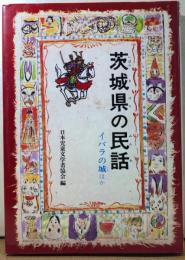 茨城県の民話
イバラの城ほか
日本児童文学者協会 編